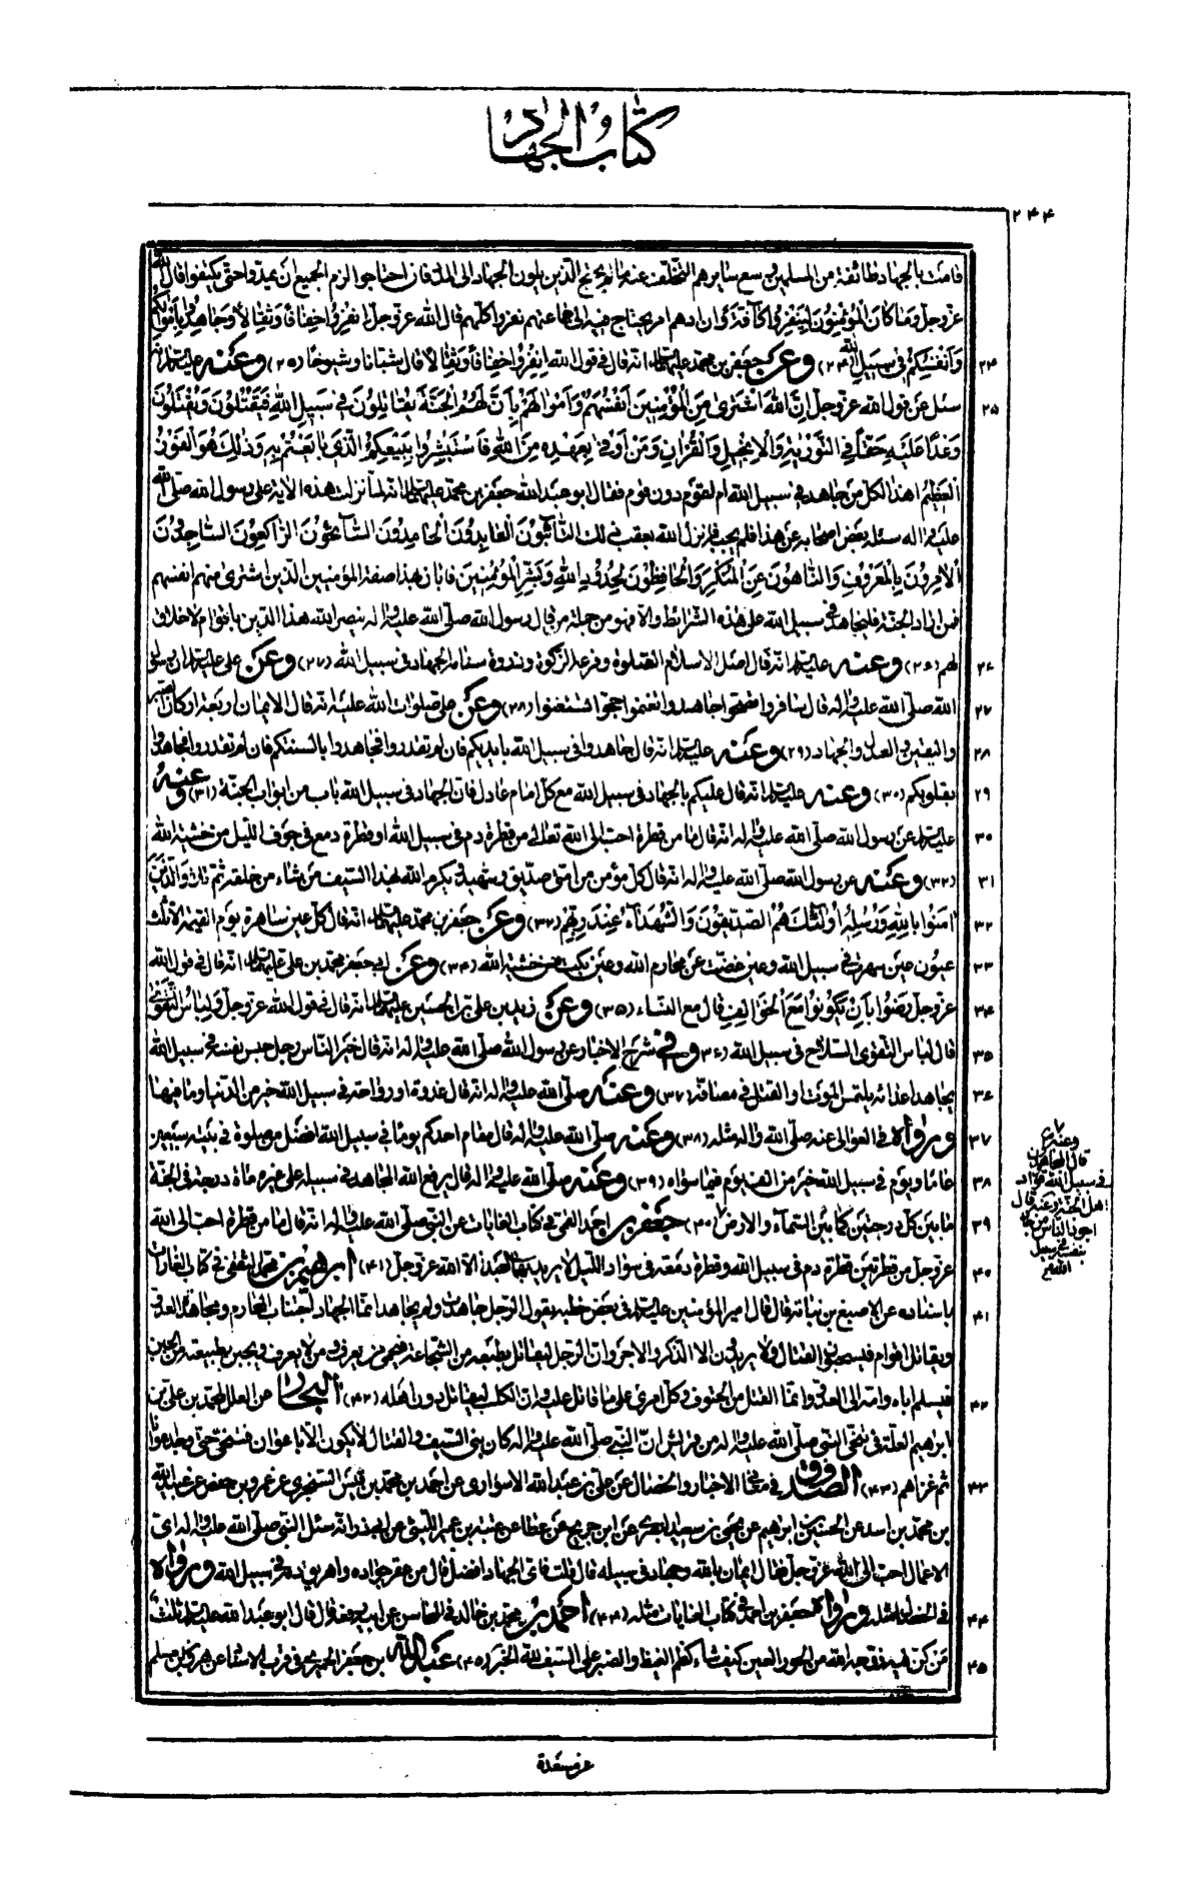 كتاب الجهاد
۲۴۴
قامت بالجهاد طائفة من المسلمين وسع سايرهم التخلف عنه ما لم يحتج الذين يلون الجهاد الى المدد فان احتاجوا لزم الجميع ان يمدوا حتى يكتفوا قال الله
عز وجل وَمَا كَانَ الْمُؤْمِنُونَ لِيَنْفِرُوا كَافَّةً وان دهم امر يحتاج فيه الى جماعتهم نفروا كلهم قال الله عز وجل انْفِرُوا خِفَافًا وَثِقَالًا وَجَاهِدُوا بِأَمْوَالِكُمْ
وَأَنْفُسِكُمْ فِي سَبِيلِ اللَّهِ (۲۴) وعن جعفر بن محمد عليهما انه قال في قول الله انْفِرُوا خِفَافًا وَثِقَالًا قال شبانا وشيوخا (۲۵) وعنه عليه انه ۲۴
سئل عن قول الله عز وجل إِنَّ اللَّهَ اشْتَرَى مِنَ الْمُؤْمِنِينَ أَنْفُسَهُمْ وَأَمْوَالَهُمْ بِأَنَّ لَهُمُ الْجَنَّةَ يُقَاتِلُونَ فِي سَبِيلِ اللَّهِ فَيَقْتُلُونَ وَيُقْتَلُونَ ۲۵
وَعْدًا عَلَيْهِ حَقًّا فِي التَّوْرَيةِ وَالْإِنْجِيلِ وَالْقُرْآنِ وَمَنْ أَوْفَى بِعَهْدِهِ مِنَ اللَّهِ فَاسْتَبْشِرُوا بِبَيْعِكُمُ الَّذِي بَايَعْتُمْ بِهِ وَذَلِكَ هُوَ الْفَوْزُ
الْعَظِيمُ اهذا لكل من جاهد في سبيل الله ام لقوم دون قوم فقال ابو عبد الله جعفر بن محمد عليهما انه لما نزلت هذه الاية على رسول الله صلى الله
عليه واله سئله بعض اصحابه عن هذا فلم يجبه فانزل الله بعقب ذلك التَّائِبُونَ الْعَابِدُونَ الْحَامِدُونَ السَّائِحُونَ الرَّاكِعُونَ السَّاجِدُونَ
الْآمِرُونَ بِالْمَعْرُوفِ وَالنَّاهُونَ عَنِ الْمُنْكَرِ وَالْحَافِظُونَ لِحُدُودِ اللَّهِ وَبَشِّرِ الْمُؤْمِنِينَ فابان بهذا صفة المؤمنين الذين اشترى منهم انفسهم
فمن اراد الجنة فليجاهد في سبيل الله على هذه الشرائط والا فهو من جملة من قال رسول الله صلى الله عليه واله ينصر الله هذا الدين باقوام لا خلاق
لهم (۲۶) وعنه عليه انه قال اصل الاسلام الصلوة وفرعه الزكوة وذروة سنامه الجهاد في سبيل الله (۲۷) وعن على عليه ان رسول ۲۶
الله صلى الله عليه واله قال سافروا تصحوا جاهدوا تغتنموا حجوا تستغنوا (۲۸) وعن على صلوات الله عليه انه قال الايمان اربعة اركان الصبر ۲۷
واليقين والعدل والجهاد (۲۹) وعنه عليه انه قال جاهدوا في سبيل الله بايديكم فان لم تقدروا فجاهدوا بالسنتكم فان لم تقدروا فجاهدوا ۲۸
بقلوبكم (۳۰) وعنه عليه انه قال عليكم بالجهاد في سبيل الله مع كل امام عادل فان الجهاد في سبيل الله باب من ابواب الجنة (۳۱) وعنه ۲۹
عليه عن رسول الله صلى الله عليه واله انه قال ما من قطرة احب الى الله تعالى من قطرة دم في سبيل الله او قطرة دمع في جوف الليل من خشية الله ۳۰
(۳۲) وعنه عن رسول الله صلى الله عليه واله انه قال كل مؤمن من امتى صديق وشهيد ويكرم الله بهذا السيف من شاء من خلقه ثم تلا وَالَّذِينَ ۳۱
آمَنُوا بِاللَّهِ وَرُسُلِهِ أُولَئِكَ هُمُ الصِّدِّيقُونَ وَالشُّهَدَاءُ عِنْدَ رَبِّهِمْ (۳۳) وعن جعفر بن محمد عليهما انه قال كل عين ساهرة يوم القيمة الا ثلث ۳۲
عيون عين سهرت في سبيل الله وعين غضت عن محارم الله وعين بكت من خشية الله (۳۴) وعن ابى جعفر محمد بن على عليهما انه قال في قول الله ۳۳
عز وجل رَضُوا بِأَنْ يَكُونُوا مَعَ الْخَوَالِفِ قال مع النساء (۳۵) وعن زيد بن على بن الحسين عليهما انه قال في قول الله عز وجل وَلِبَاسُ التَّقْوَى ۳۴
قال لباس التقوى السلاح في سبيل الله (۳۶) وفي شرح الاخبار عن رسول الله صلى الله عليه واله انه قال خير الناس رجل حبس نفسه في سبيل الله ۳۵
يجاهد اعدائه يلتمس الموت او القتل في مصافه (۳۷) وعنه صلى الله عليه واله انه قال غدوة او روحة في سبيل الله خير من الدنيا وما فيها ۳۶
ورواه في العوالى عنه صلى الله واله مثله (۳۸) وعنه صلى الله عليه واله قال مقام احدكم يوما في سبيل الله افضل من صلوة في بيته سبعين ۳۷
عاما ويوم في سبيل الله خير من الف يوم فيما سواه (۳۹) وعنه صلى الله عليه واله قال يرفع الله المجاهد في سبيله على غيره مأة درجة في الجنة ۳۸
ما بين كل درجتين كما بين السماء والارض (۴۰) جعفر بن احمد القمى في كتاب الغايات عن النبى صلى الله عليه واله انه قال ما من قطرة احب الى الله ۳۹
عز وجل من قطرتين قطرة دم في سبيل الله وقطرة دمعة في سواد الليل لا يريد بها العبد الا الله عز وجل (۴۱) ابرهيم بن محمد الثقفى في كتاب الغارات ۴۰
باسناده عن الاصبغ بن نباتة قال قال امير المؤمنين عليه في بعض خطبه يقول الرجل جاهدت ولم يجاهد انما الجهاد اجتناب المحارم ومجاهدة العدو ۴۱
ويقاتل اقوام فيحبون القتال لا يريدون الا الذكر والاجر وان الرجل ليقاتل بطبعه من الشجاعة فيحمى من يعرف ومن لا يعرف ويجبن بطبيعته من الجبن
فيسلم اباه وامه الى العدو وانما القتل من الحتوف وكل امرئ على ما قاتل عليه وان الكلب ليقاتل دون اهله (۴۲) البحار عن العلل لمحمد بن على بن ۴۲
ابراهيم العلة في تنحى النبى صلى الله عليه واله من قريش ان النبى صلى الله عليه واله كان نبى السيف والقتال لا يكون الا باعوان فتنحى حتى وجد اعوانا
ثم غزاهم (۴۳) الصدوق في معانى الاخبار والخصال عن على بن عبد الله الاسوارى عن احمد بن محمد بن قيس السنجرى عن عمرو بن حفص عن عبد الله ۴۳
بن محمد بن اسد عن الحسين بن ابراهيم عن يحيى بن سعيد البصرى عن ابن جريج عن عطا عن عتبة بن عمير الليثى عن ابى ذر انه سئل النبى صلى الله عليه واله اى
الاعمال احب الى الله عز وجل فقال ايمان بالله وجهاد في سبيله قال قلت فاى الجهاد افضل قال من عقر جواده واهريق دمه في سبيل الله ورواه
في الخصال مثله ورواه جعفر بن احمد في كتاب الغايات مثله (۴۴) احمد بن محمد بن خالد في المحاسن عن ابيه رفعه قال قال ابو عبد الله عليه ثلث ۴۴
من كن فيه زوجه الله من الحور العين كيف شاء كظم الغيظ والصبر على السيف لله الخبر (۴۵) عبد الله بن جعفر الحميرى في قرب الاسناد عن هرون بن مسلم ۴۵
عن مسعدة
وعنه ع
قال المجاهدون
في سبيل الله قواد
اهل الجنة وعنه قال
اجود الناس من جاد
بنفسه في سبيل
الله